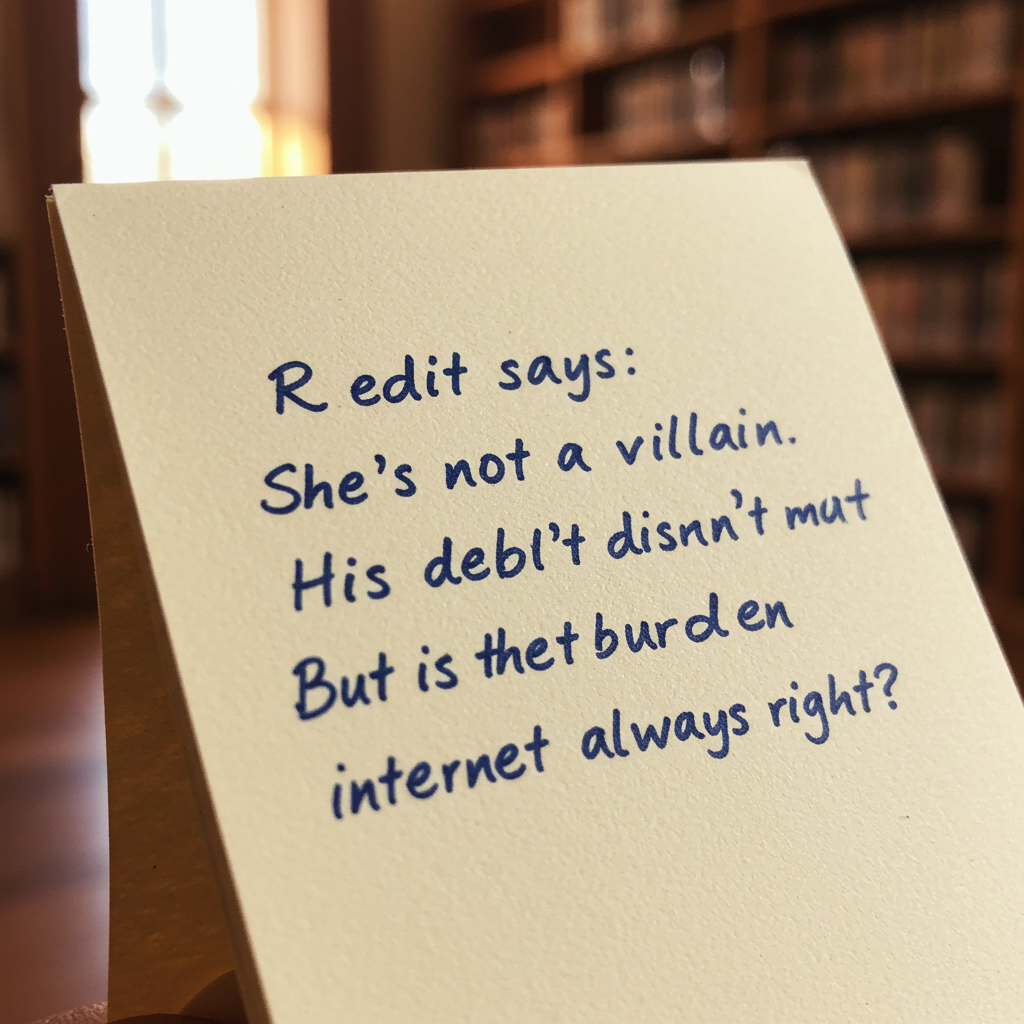 R edit says:
She's not a villain.
His debl't disnn't mut
But is thet burden
internet always right?